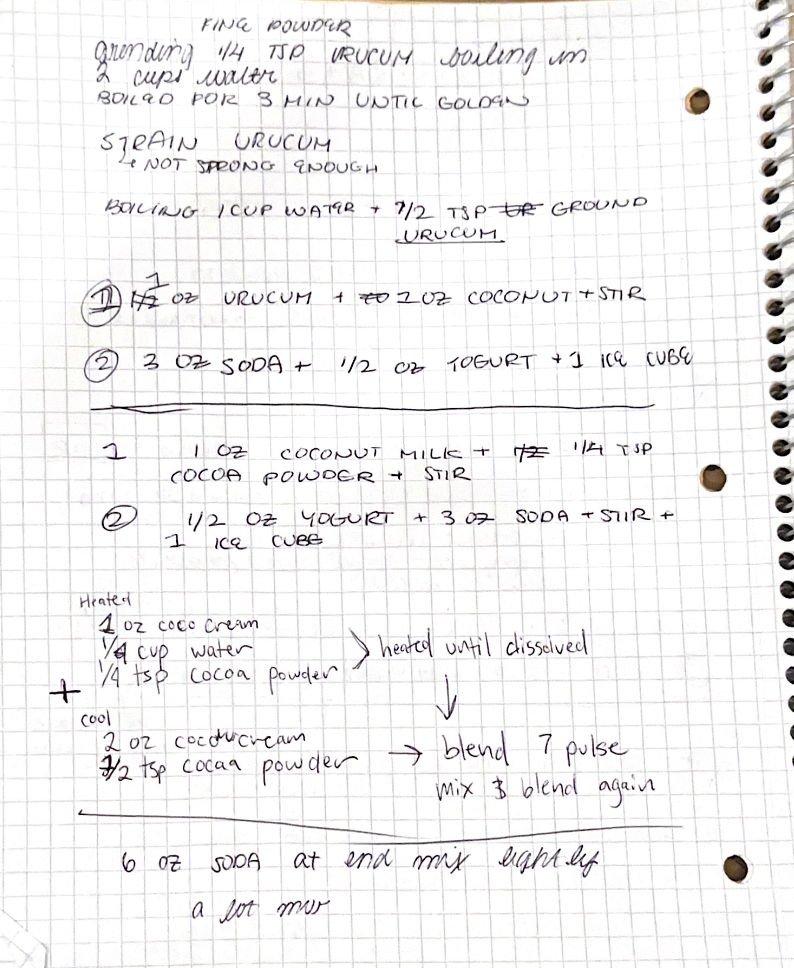 FINE POWDER
grinding 1/4 TSP URUCUM boiling in
2 cups water
BOILED FOR 3 MIN UNTIL GOLDEN
STRAIN URUCUM
↳ NOT STRONG ENOUGH
BOILING 1 CUP WATER + 1/2 TSP GROUND
URUCUM
① 1 OZ URUCUM + 1 OZ COCONUT + STIR
② 3 OZ SODA + 1/2 OZ YOGURT + 1 ICE CUBE
1 1 OZ COCONUT MILK + 1/4 TSP
COCOA POWDER + STIR
② 1/2 OZ YOGURT + 3 OZ SODA + STIR +
1 ICE CUBE
Heated
1 oz coco cream
1/4 cup water
1/4 tsp cocoa powder > heated until dissolved
+
cool
2 oz cream
1/2 tsp cocoa powder → blend 7 pulse
mix & blend again
6 OZ SODA at end mix lightly
a lot